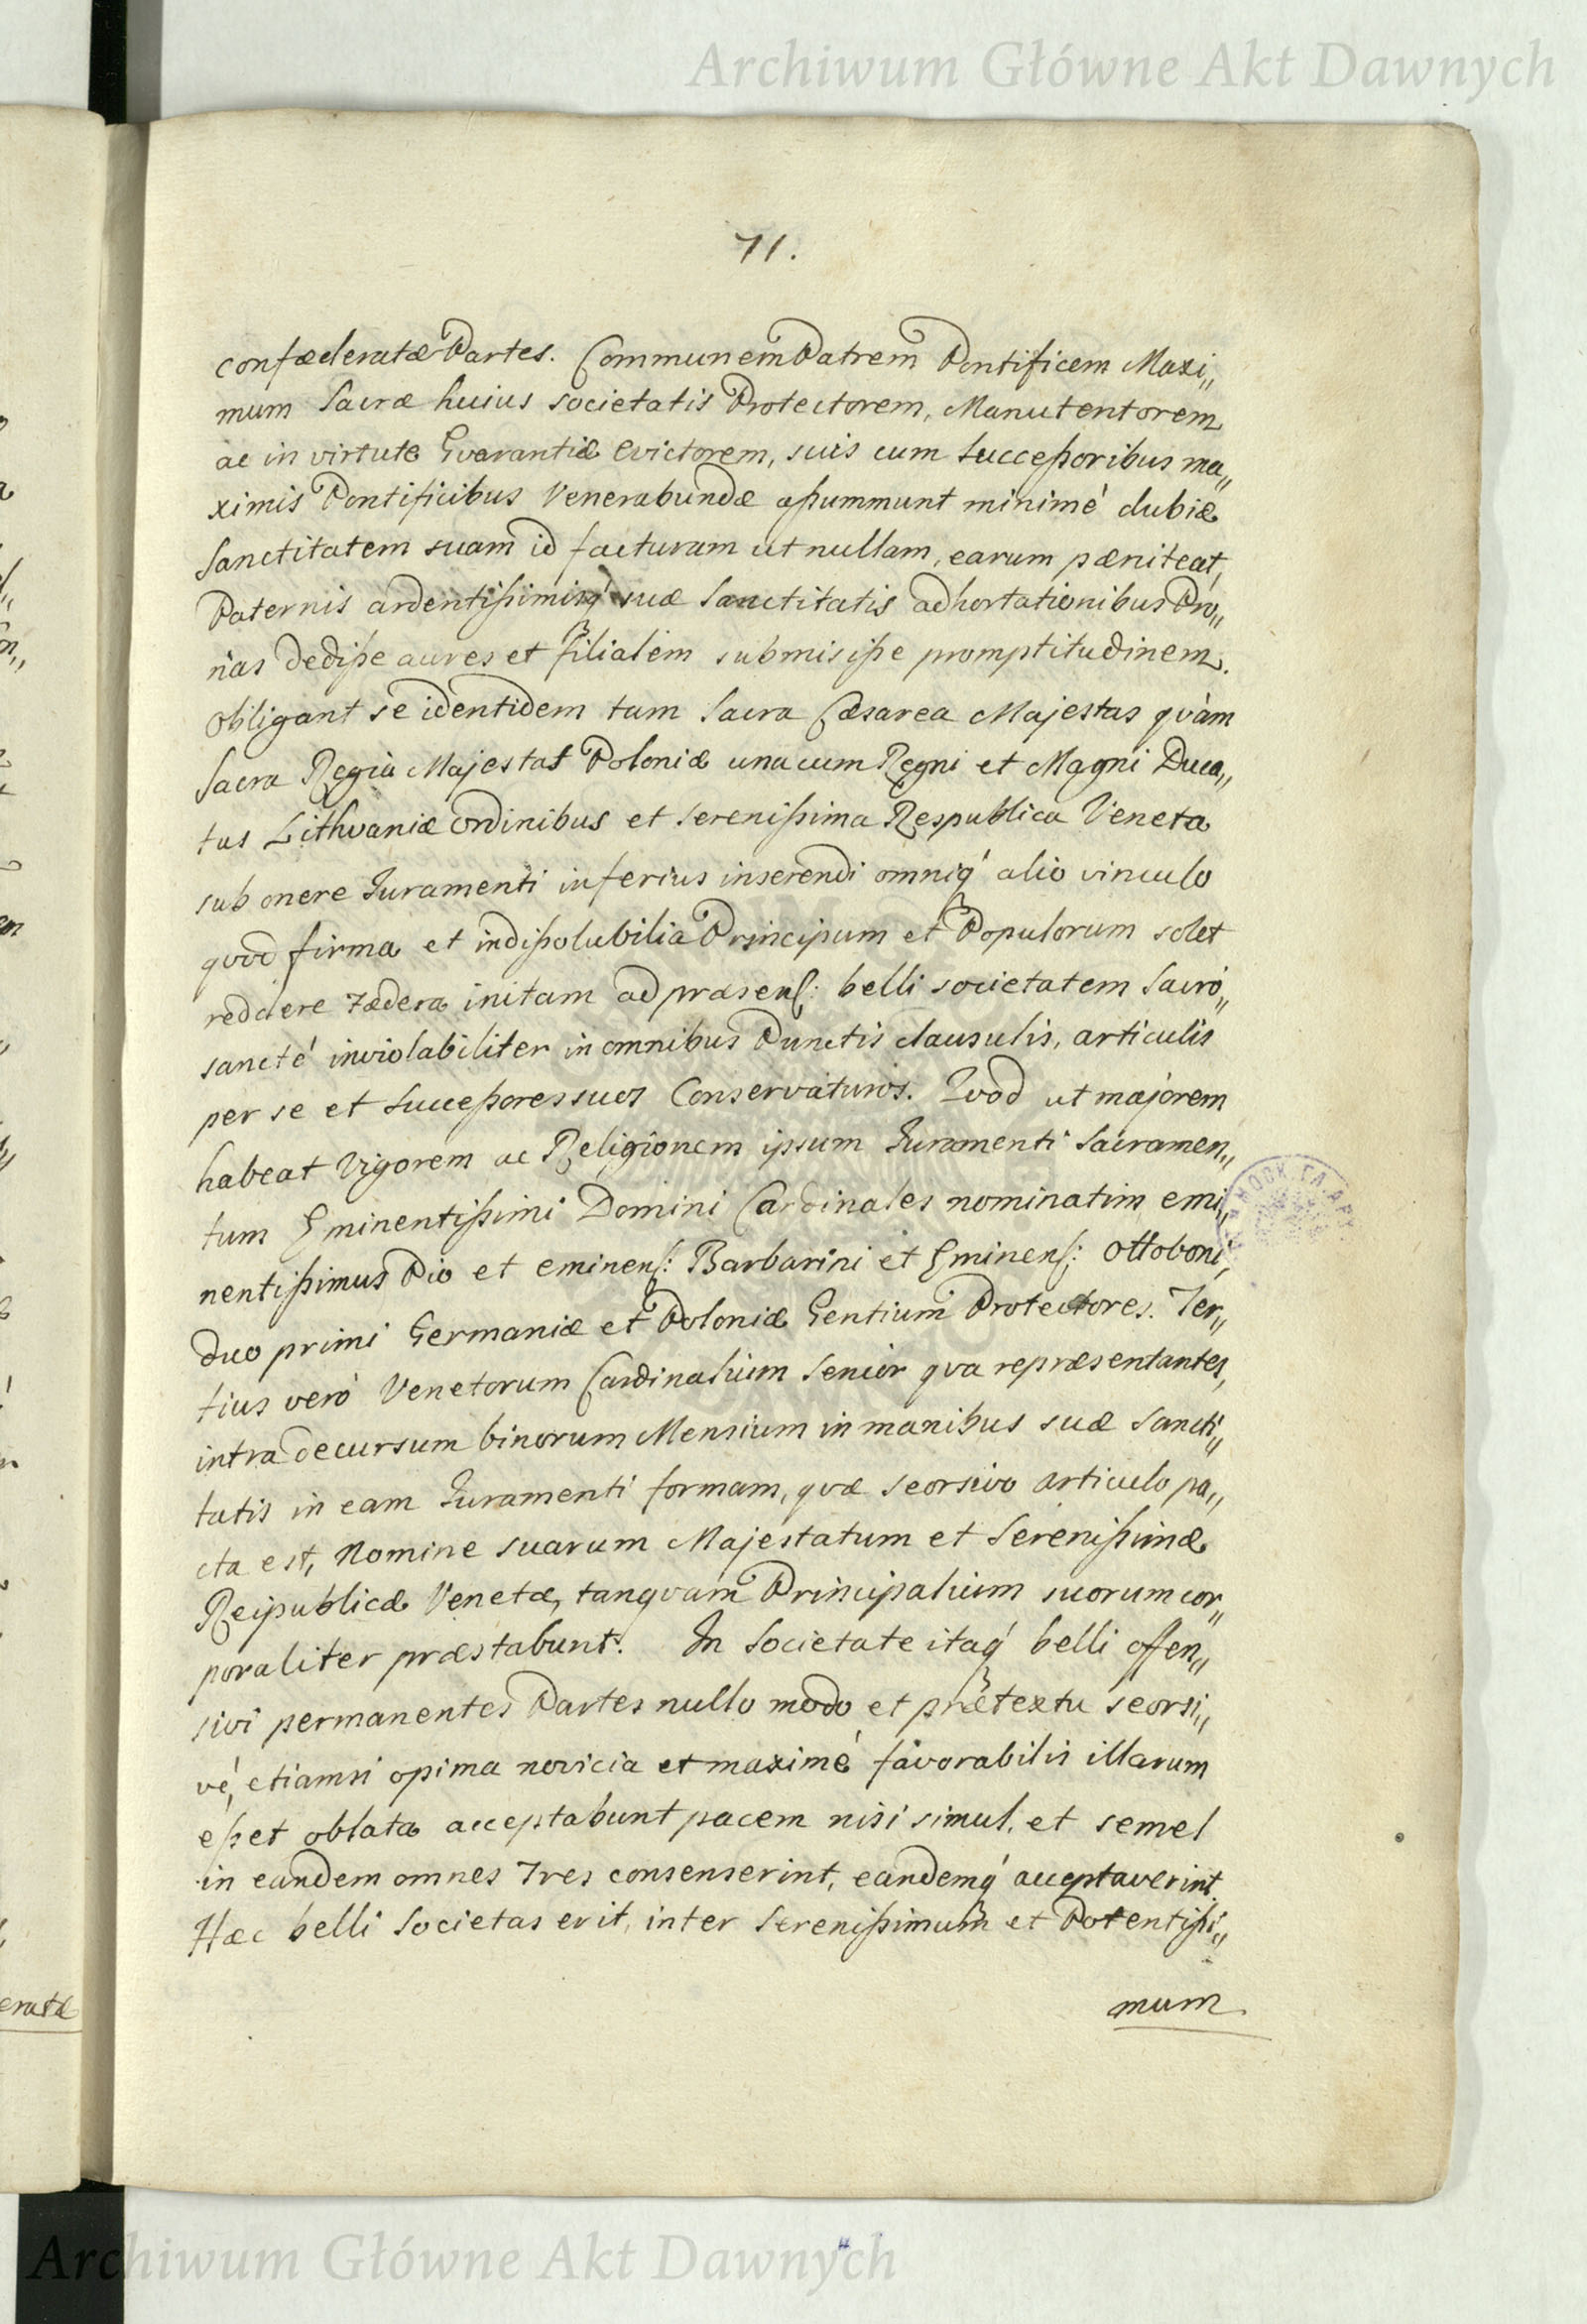 Archiwum Główne Akt Dawnych
71.
confæderatæ Partes. Communem Patrem Pontificem Maxi„
mum Sacræ huius societatis Protectorem, Manutentorem
ac in virtute Gvarantiæ evictorem, suis cum Successoribus ma„
ximis Pontificibus Venerabundæ assummunt minimé dubiæ
Sanctitatem suam id facturam ut nullam, earum pæniteat,
Paternis ardentissimisq́ suæ Sanctitatis adhortationibus Pro„
nas dedisse aures et filialem submisisse promptitudinem.
Obligant se identidem tam Sacra Cæsarea Majestas qvàm
Sacra Regia Majestas Poloniæ una cum Regni et Magni Duca„
tus Lithvaniæ ordinibus et Serenissima Respublica Veneta
sub onere Juramenti inferius inserendi omniq́ alio vinculo
qvod firma et indissolubilia Principum et Populorum solet
reddere fædera initam ad præsens: belli societatem Sacró„
sancté inviolabiliter in omnibus Punctis clausulis, articulis
per se et Successores suos Conservaturos. Qvod ut majorem
habeat Vigorem ac Religionem ipsum Juramenti Sacramen„
tum Eminentissimi Domini Cardinales nominatim emi„
nentissimus Pio et eminens: Barbarini et Eminens: Ottoboni,
duo primi Germaniæ et Poloniæ Gentium Protectores. Ter„
tius veró Venetorum Cardinalium Senior qva repræsentantes,
intra decursum binorum Mensium in manibus suæ Sancti„
tatis in eam Juramenti formam, qvæ seorsivo articulo pa„
cta est, Nomine suarum Majestatum et Serenissimæ
Reipublicæ Venetæ, tanqvam Principalium suorum cor„
poraliter præstabunt. In Societate itaq́ belli offen„
sivi permanentes Partes nullo modo et prætextu seorsi„
vé, etiamsi opima novicia et maximé favorabilis illarum
esset oblata acceptabunt pacem nisi simul, et semel
in eandem omnes Tres consenserint, eandemq́ acceptaverint
Hæc belli Societas erit, inter Serenissimum et Potentissi„
mum
eratæ
Archiwum Główne Akt Dawnych